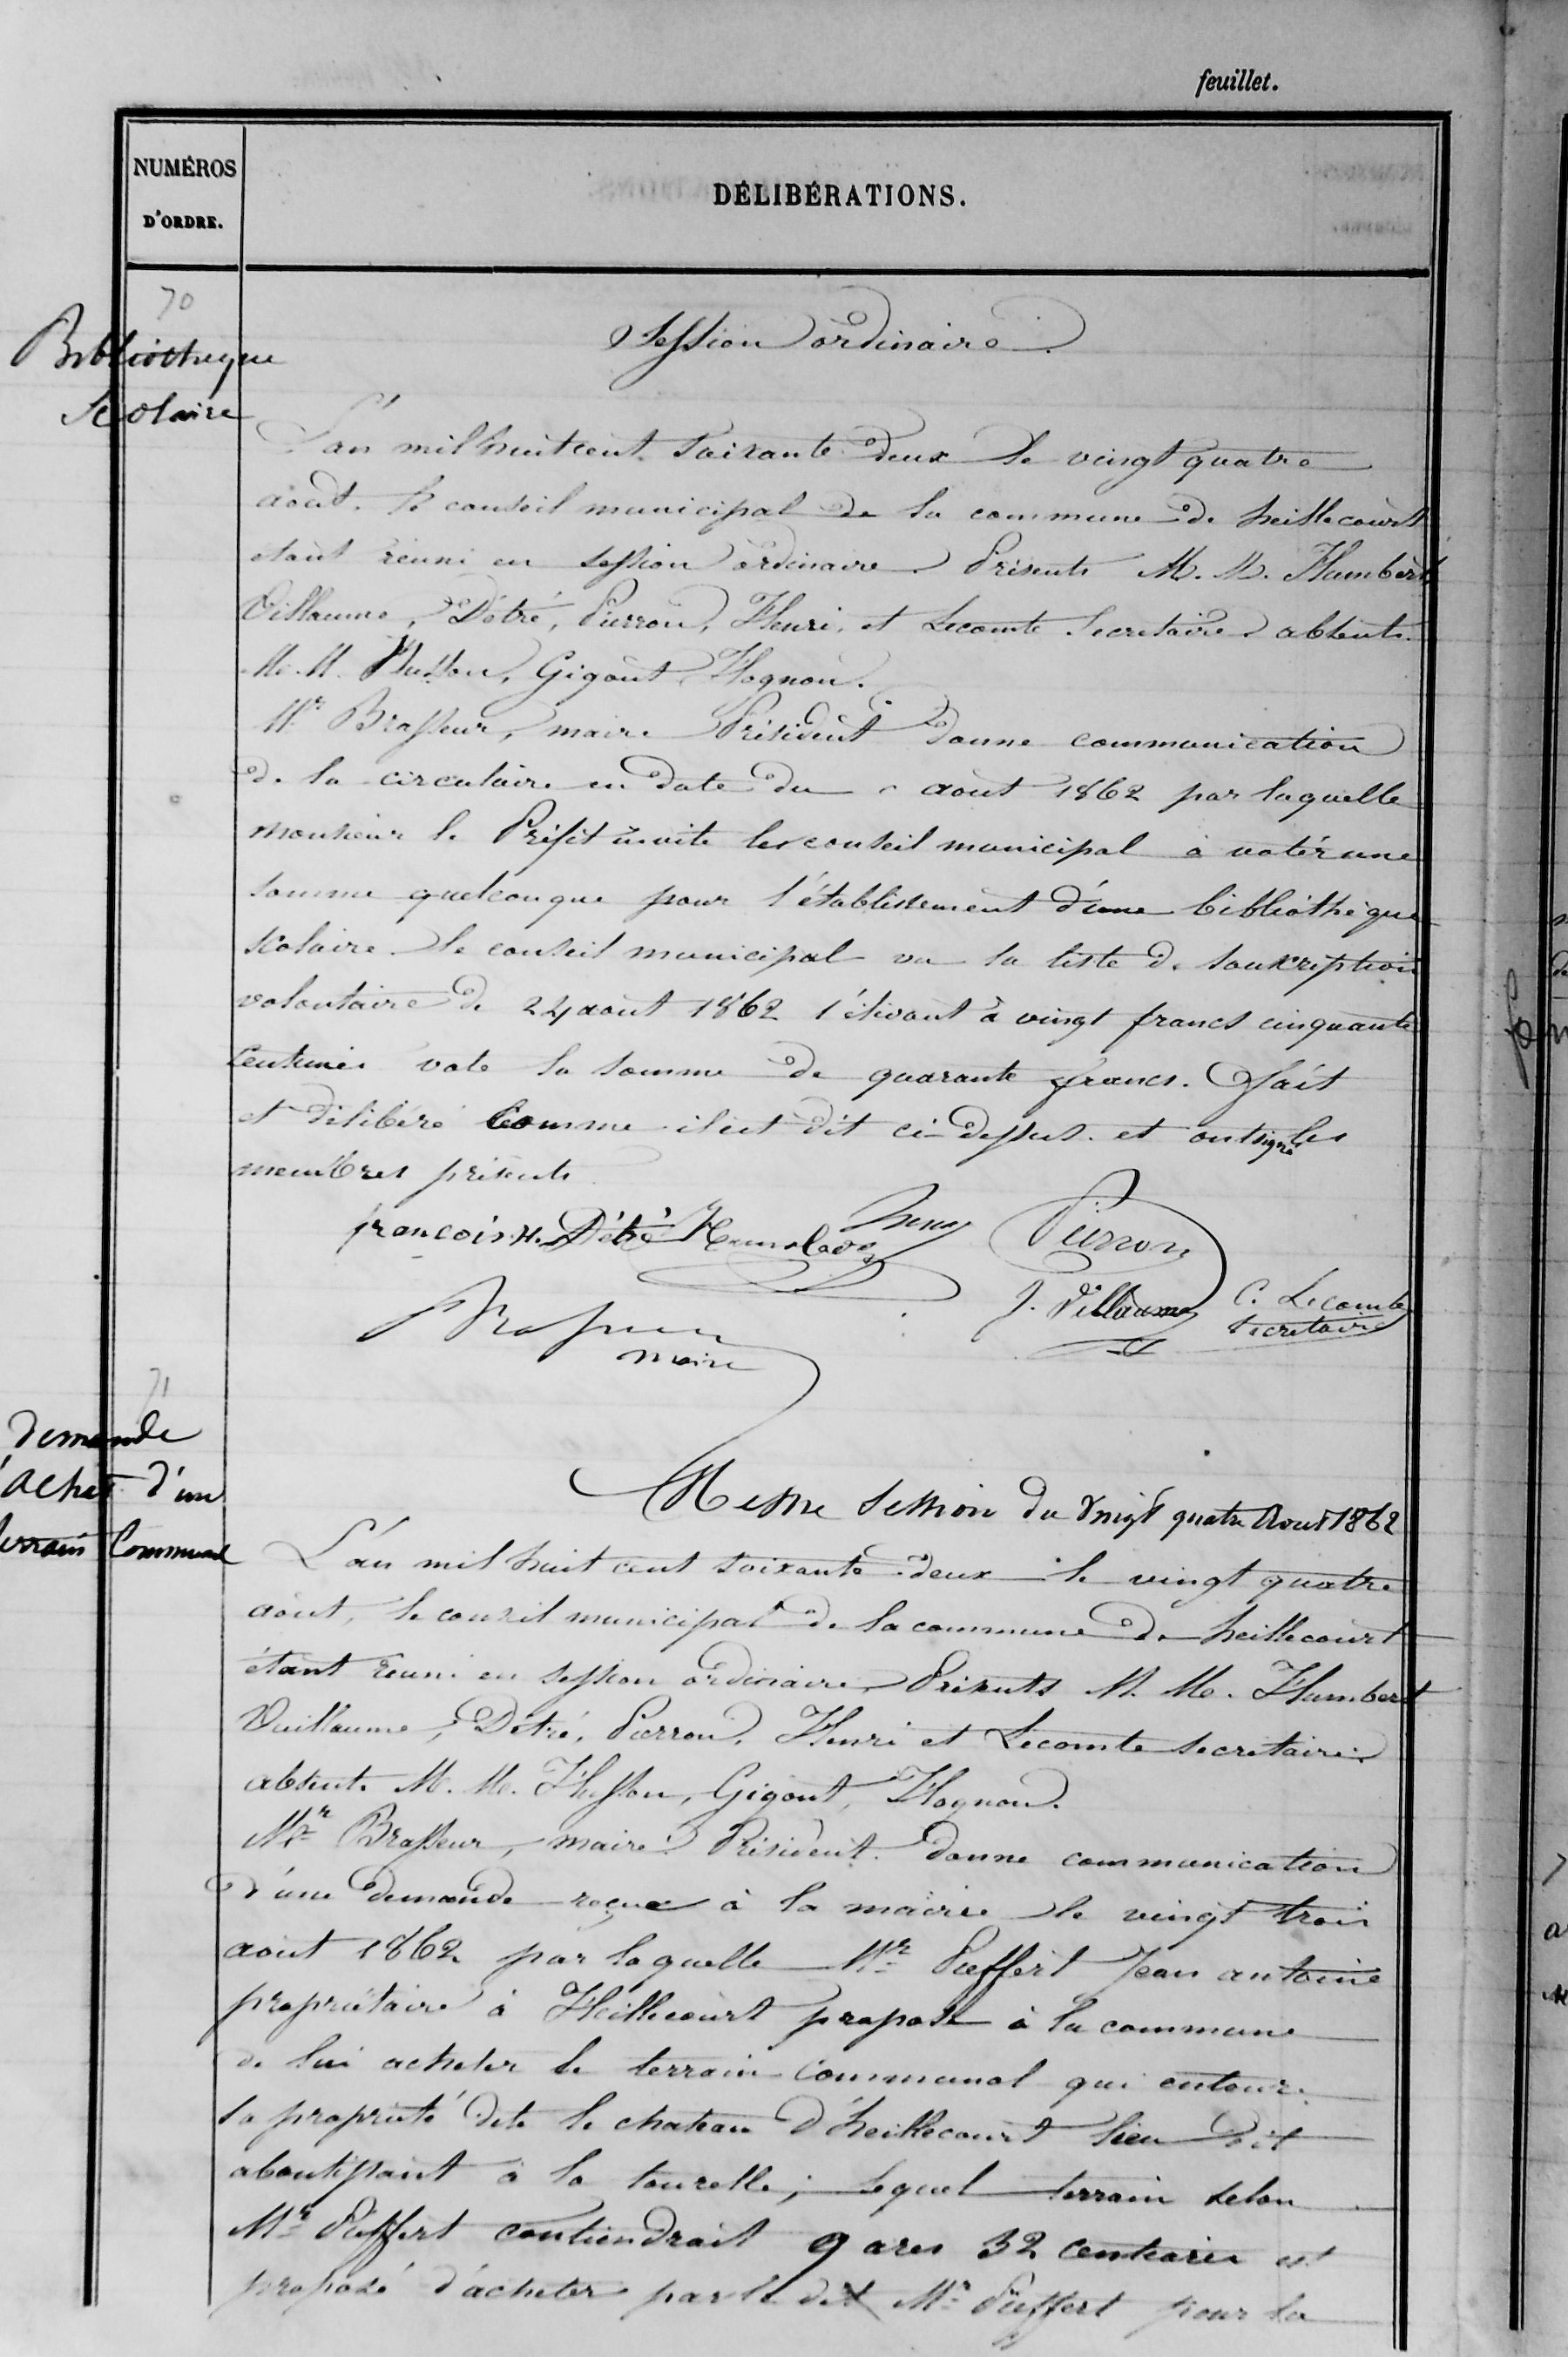 feuillet.
NUMÉROS
D'ORDRE.
DÉLIBÉRATIONS.
70
Bibliotheque
Scolaire
Session ordinaire
L'an mil huit cent soixante deux le vingt quatre
août. le conseil municipal de la commune de heillecourt
étant réuni en session ordinaire Présents M. M. Humbert
Villaume, Détré, Pierron, Henri, et Lecomte secretaire absents
M. M. Husson, Gigout, Hognon.
Mr Brasseur, maire Président donne communication
de la circulaire en date du août 1862 par laquelle
monsieur le Préfet invite les conseil municipal à voter une
somme quelconque pour l'établissement d'une bibliothèque
scolaire. le conseil municipal vu la liste de souscription
volontaire de 24 août 1862 s'élevant à vingt francs cinquante
centimes vote la somme de quarante francs. Fait
et délibéré comme il est dit ci-dessus. et ont signé les
membres présents
françois. H. Détré Henry Pierron
Brasseur J. Villaume C. Lecomte
maire secretaire
71
Demande
d'achat d'un
terrain Communal
Meme session du Vingt quatre Aout 1862
L'an mil huit cent soixante deux le vingt quatre
août, le conseil municipal de la commune de heillecourt
étant réuni en session ordinaire Présents M. M. Humbert
Vuillaume, Détré, Pierron, Henri et Lecomte secretaire
absents M. M. Husson, Gigout, Hognon.
Mr Brasseur, maire Président donne communication
d'une demande reçue à la mairie le vingt trois
août 1862 par laquelle Mr Pieffert Jean antoine
propriétaire à Heillecourt propose à la commune
de lui acheter le terrain communal qui entoure
sa propriété dite le chateau d'heillecourt lieu dit
aboutissant à la tourelle; lequel terrain selon
Mr Pieffert contiendrait 9 ares 32 centiares est
proposé d'acheter par le dit Mr Pieffert pour la